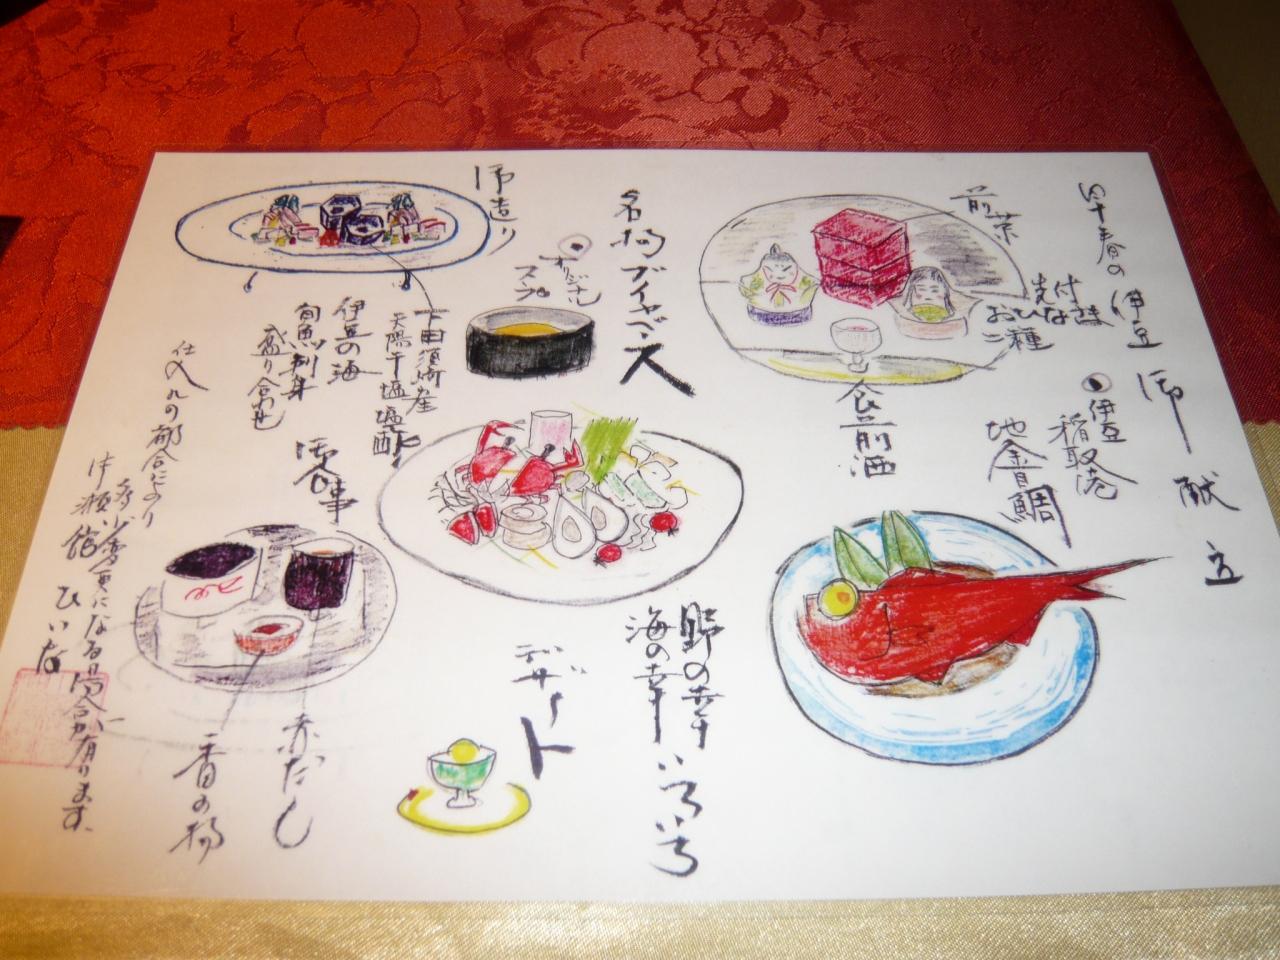 伊豆
御献立
前菜
おひな
食前酒
伊豆
稲取港
地金目鯛
名物ブイヤベース
オリジナル
スープ
野の幸
海の幸いろいろ
御造り
下田須崎産
天陽干塩
伊豆の海
旬魚刺身
盛り合わせ
デザート
御食事
赤だし
香の物
仕入れの都合により
多少変更になる場合が有ります。
ひいな